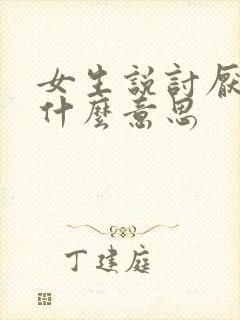 女生說討厭
什麼意思
丁建庭